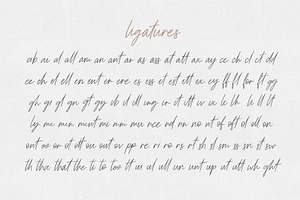 ligatures
ab au al all am an ant ar as ass at att ax ay ce ch cl ct dd
ee eh el ell en ent er ere es ess et ett ex ey ff fl for ft gg
gh gi gl gn gt gy ib il ill ing ir it itt iv ix ke kh ki ll llt
ly me min mint mi mm mu nce nd nn no nt of oft ol oll on
ont oo or ot ott ou out ov pp re ri ro rs rt sh sl sm ss sn st sw
th tha that the ti to too tt us ul ull un unt up ut utt wh ght